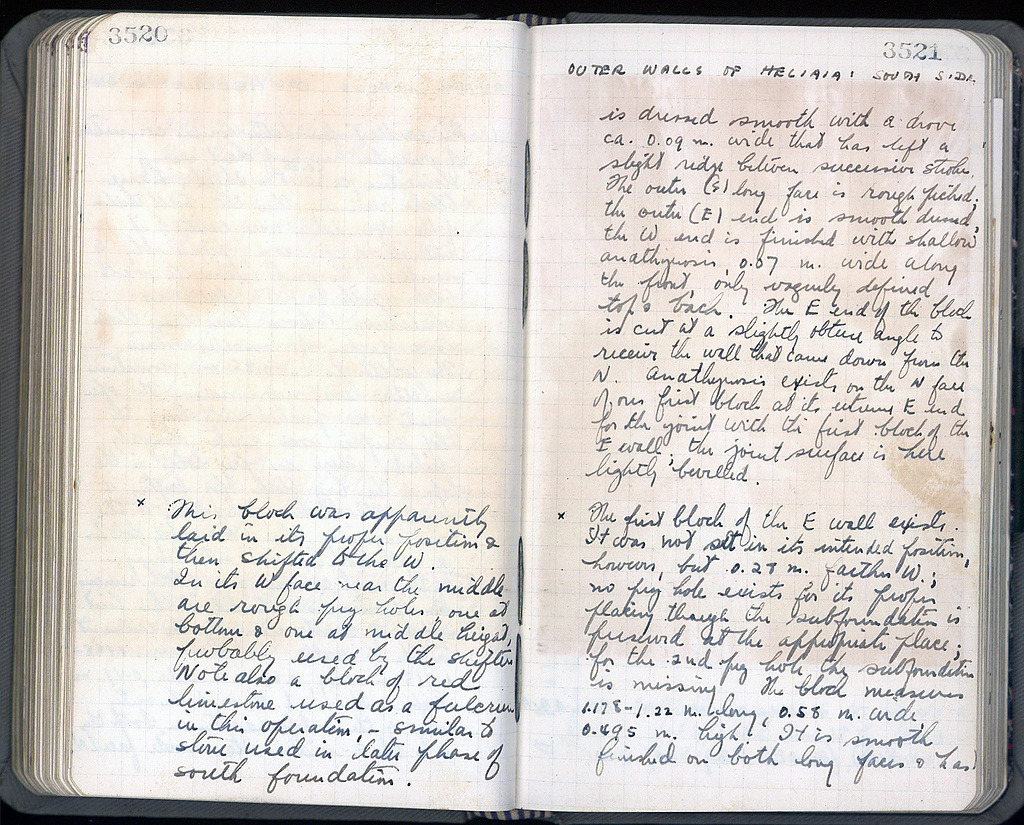 3520
× This block was apparently
laid in its proper position &
then shifted to the W.
In its W face near the middle
are rough pry holes one at
bottom & one at middle height,
probably used by the shifters
Note also a block of red
limestone used as a fulcrum
in this operation, – similar to
stone used in later phase of
south foundation.
3521
OUTER WALLS OF HELIAIA: SOUTH SIDE
is dressed smooth with a drove
ca. 0.09 m. wide that has left a
slight ridge between successive strokes.
The outer (S) long face is rough picked;
the outer (E) end is smooth dressed;
the W end is finished with shallow
anathyrosis, 0.07 m. wide along
the front, only vaguely defined
top & back. The E end of the block
is cut at a slightly obtuse angle to
receive the wall that came down from the
N. Anathyrosis exists on the N face
of our first block at its extreme E end
for the joint with the first block of the
E wall; the joint surface is here
lightly bevelled.
× The first block of the E wall exists.
It was not set in its intended position,
however, but 0.28 m. farther W.;
no pry hole exists for its proper
placing though the subfoundation is
preserved at the appropriate place;
for the 2nd pry hole the subfoundation
is missing. The block measures
1.178-1.22 m. long, 0.58 m. wide,
0.495 m. high. It is smooth
finished on both long faces & has